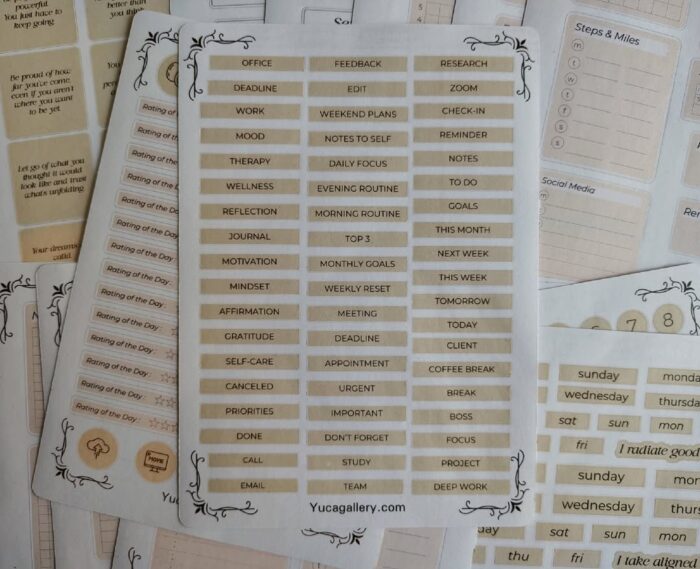 powerful.
You just have to
keep going
better than
you think
Be proud of how
far you've come
even if you aren't
where you want
to be yet
Let go of what you
thought it would
look like and trust
what's unfolding
Your dreams
Rating of the Day :
Rating of the Day :
Rating of the Day :
Rating of the Day :
Rating of the Day :
HOME
OFFICE
DEADLINE
WORK
MOOD
THERAPY
WELLNESS
REFLECTION
JOURNAL
MOTIVATION
MINDSET
AFFIRMATION
GRATITUDE
SELF-CARE
CANCELED
PRIORITIES
DONE
CALL
EMAIL
FEEDBACK
EDIT
WEEKEND PLANS
NOTES TO SELF
DAILY FOCUS
EVENING ROUTINE
MORNING ROUTINE
TOP 3
MONTHLY GOALS
WEEKLY RESET
MEETING
DEADLINE
APPOINTMENT
URGENT
IMPORTANT
DON'T FORGET
STUDY
TEAM
RESEARCH
ZOOM
CHECK-IN
REMINDER
NOTES
TO DO
GOALS
THIS MONTH
NEXT WEEK
THIS WEEK
TOMORROW
TODAY
CLIENT
COFFEE BREAK
BREAK
BOSS
FOCUS
PROJECT
DEEP WORK
Yucagallery.com
Steps & Miles
m
t
w
t
f
s
s
Social Media
m
7 8
sunday
wednesday
sat sun mon
fri I radiate good
sunday
wednesday
sat sun mon
thu fri I take aligned